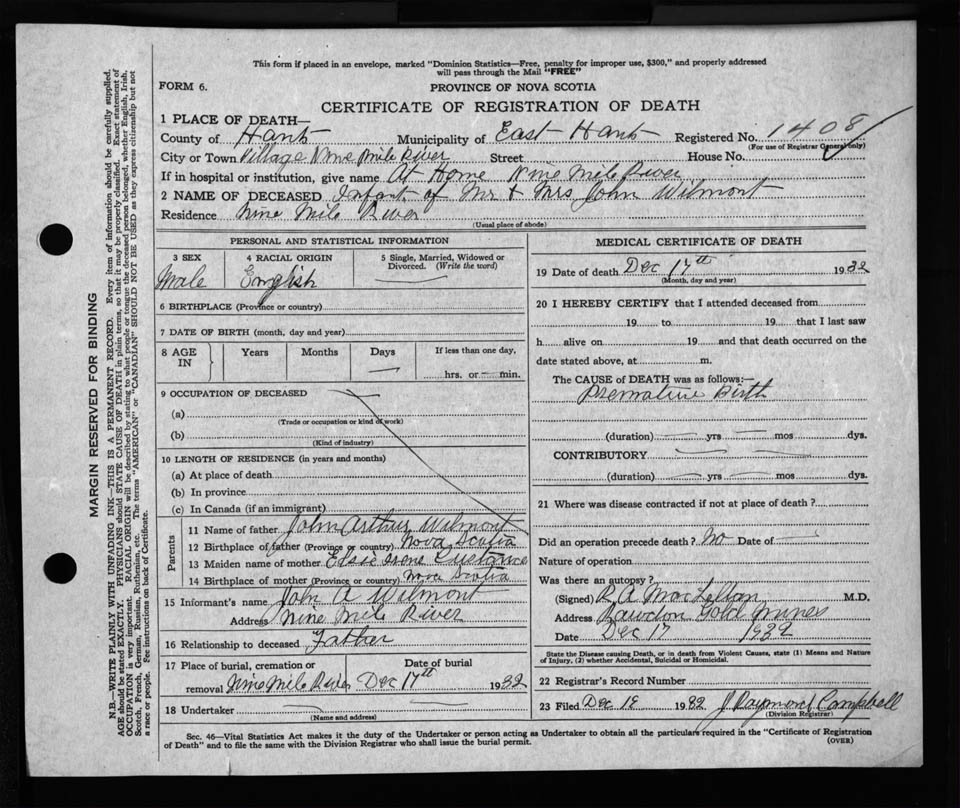 This form if placed in an envelope, marked "Dominion Statistics—Free, penalty for improper use, $300," and properly addressed
will pass through the Mail "FREE"
FORM 6.
PROVINCE OF NOVA SCOTIA
CERTIFICATE OF REGISTRATION OF DEATH
1 PLACE OF DEATH—
County of Hants Municipality of East Hants Registered No. 1408
(For use of Registrar General only)
City or Town Village Nine Mile River Street House No.
If in hospital or institution, give name At Home Nine Mile River
2 NAME OF DECEASED Infant of Mr & Mrs John Wilmont
Residence Nine Mile River
(Usual place of abode)
PERSONAL AND STATISTICAL INFORMATION
3 SEX 4 RACIAL ORIGIN 5 Single, Married, Widowed or Divorced. (Write the word)
Male English
6 BIRTHPLACE (Province or country)
7 DATE OF BIRTH (month, day and year)
8 AGE IN Years Months Days If less than one day,
hrs. or min.
9 OCCUPATION OF DECEASED
(a)
(Trade or occupation or kind of work)
(b)
(Kind of industry)
10 LENGTH OF RESIDENCE (in years and months)
(a) At place of death
(b) In province
(c) In Canada (if an immigrant)
Parents
11 Name of father John Arthur Wilmont
12 Birthplace of father (Province or country) Nova Scotia
13 Maiden name of mother Elsie
14 Birthplace of mother (Province or country) Nova Scotia
15 Informant's name John A Wilmont
Address Nine Mile River
16 Relationship to deceased Father
17 Place of burial, cremation or removal Nine Mile River Date of burial Dec 17th 1932
18 Undertaker
(Name and address)
MEDICAL CERTIFICATE OF DEATH
19 Date of death Dec 17th 1932
(Month, day and year)
20 I HEREBY CERTIFY that I attended deceased from
19 to 19 that I last saw
h alive on 19 and that death occurred on the
date stated above, at m.
The CAUSE of DEATH was as follows:—
Premature Birth
(duration) yrs mos dys.
CONTRIBUTORY
(duration) yrs mos dys.
21 Where was disease contracted if not at place of death?
Did an operation precede death? No Date of
Nature of operation
Was there an autopsy?
(Signed) R A MacLellan M.D.
Address Rawdon Gold Mines
Date Dec 17 1932
State the Disease causing Death, or in death from Violent Causes, state (1) Means and Nature
of Injury, (2) whether Accidental, Suicidal or Homicidal.
22 Registrar's Record Number
23 Filed Dec 1932 J Raymond Campbell
(Division Registrar)
Sec. 46—Vital Statistics Act makes it the duty of the Undertaker or person acting as Undertaker to obtain all the particulars required in the "Certificate of Registration
of Death" and to file the same with the Division Registrar who shall issue the burial permit.
(OVER)
MARGIN RESERVED FOR BINDING
N.B.—WRITE PLAINLY WITH UNFADING INK—THIS IS A PERMANENT RECORD. Every item of information should be carefully supplied.
AGE should be stated EXACTLY. PHYSICIANS should STATE CAUSE OF DEATH in plain terms, so that it may be properly classified. Exact statement of
OCCUPATION is very important. RACIAL ORIGIN will be described by stating to what people or tongue the deceased person belonged, whether English, Irish,
Scotch, French, German, Russian, Ruthenian, etc. The terms "AMERICAN" or "CANADIAN" SHOULD NOT BE USED as they express citizenship but not
a race or people. Fee instructions on back of Certificate.